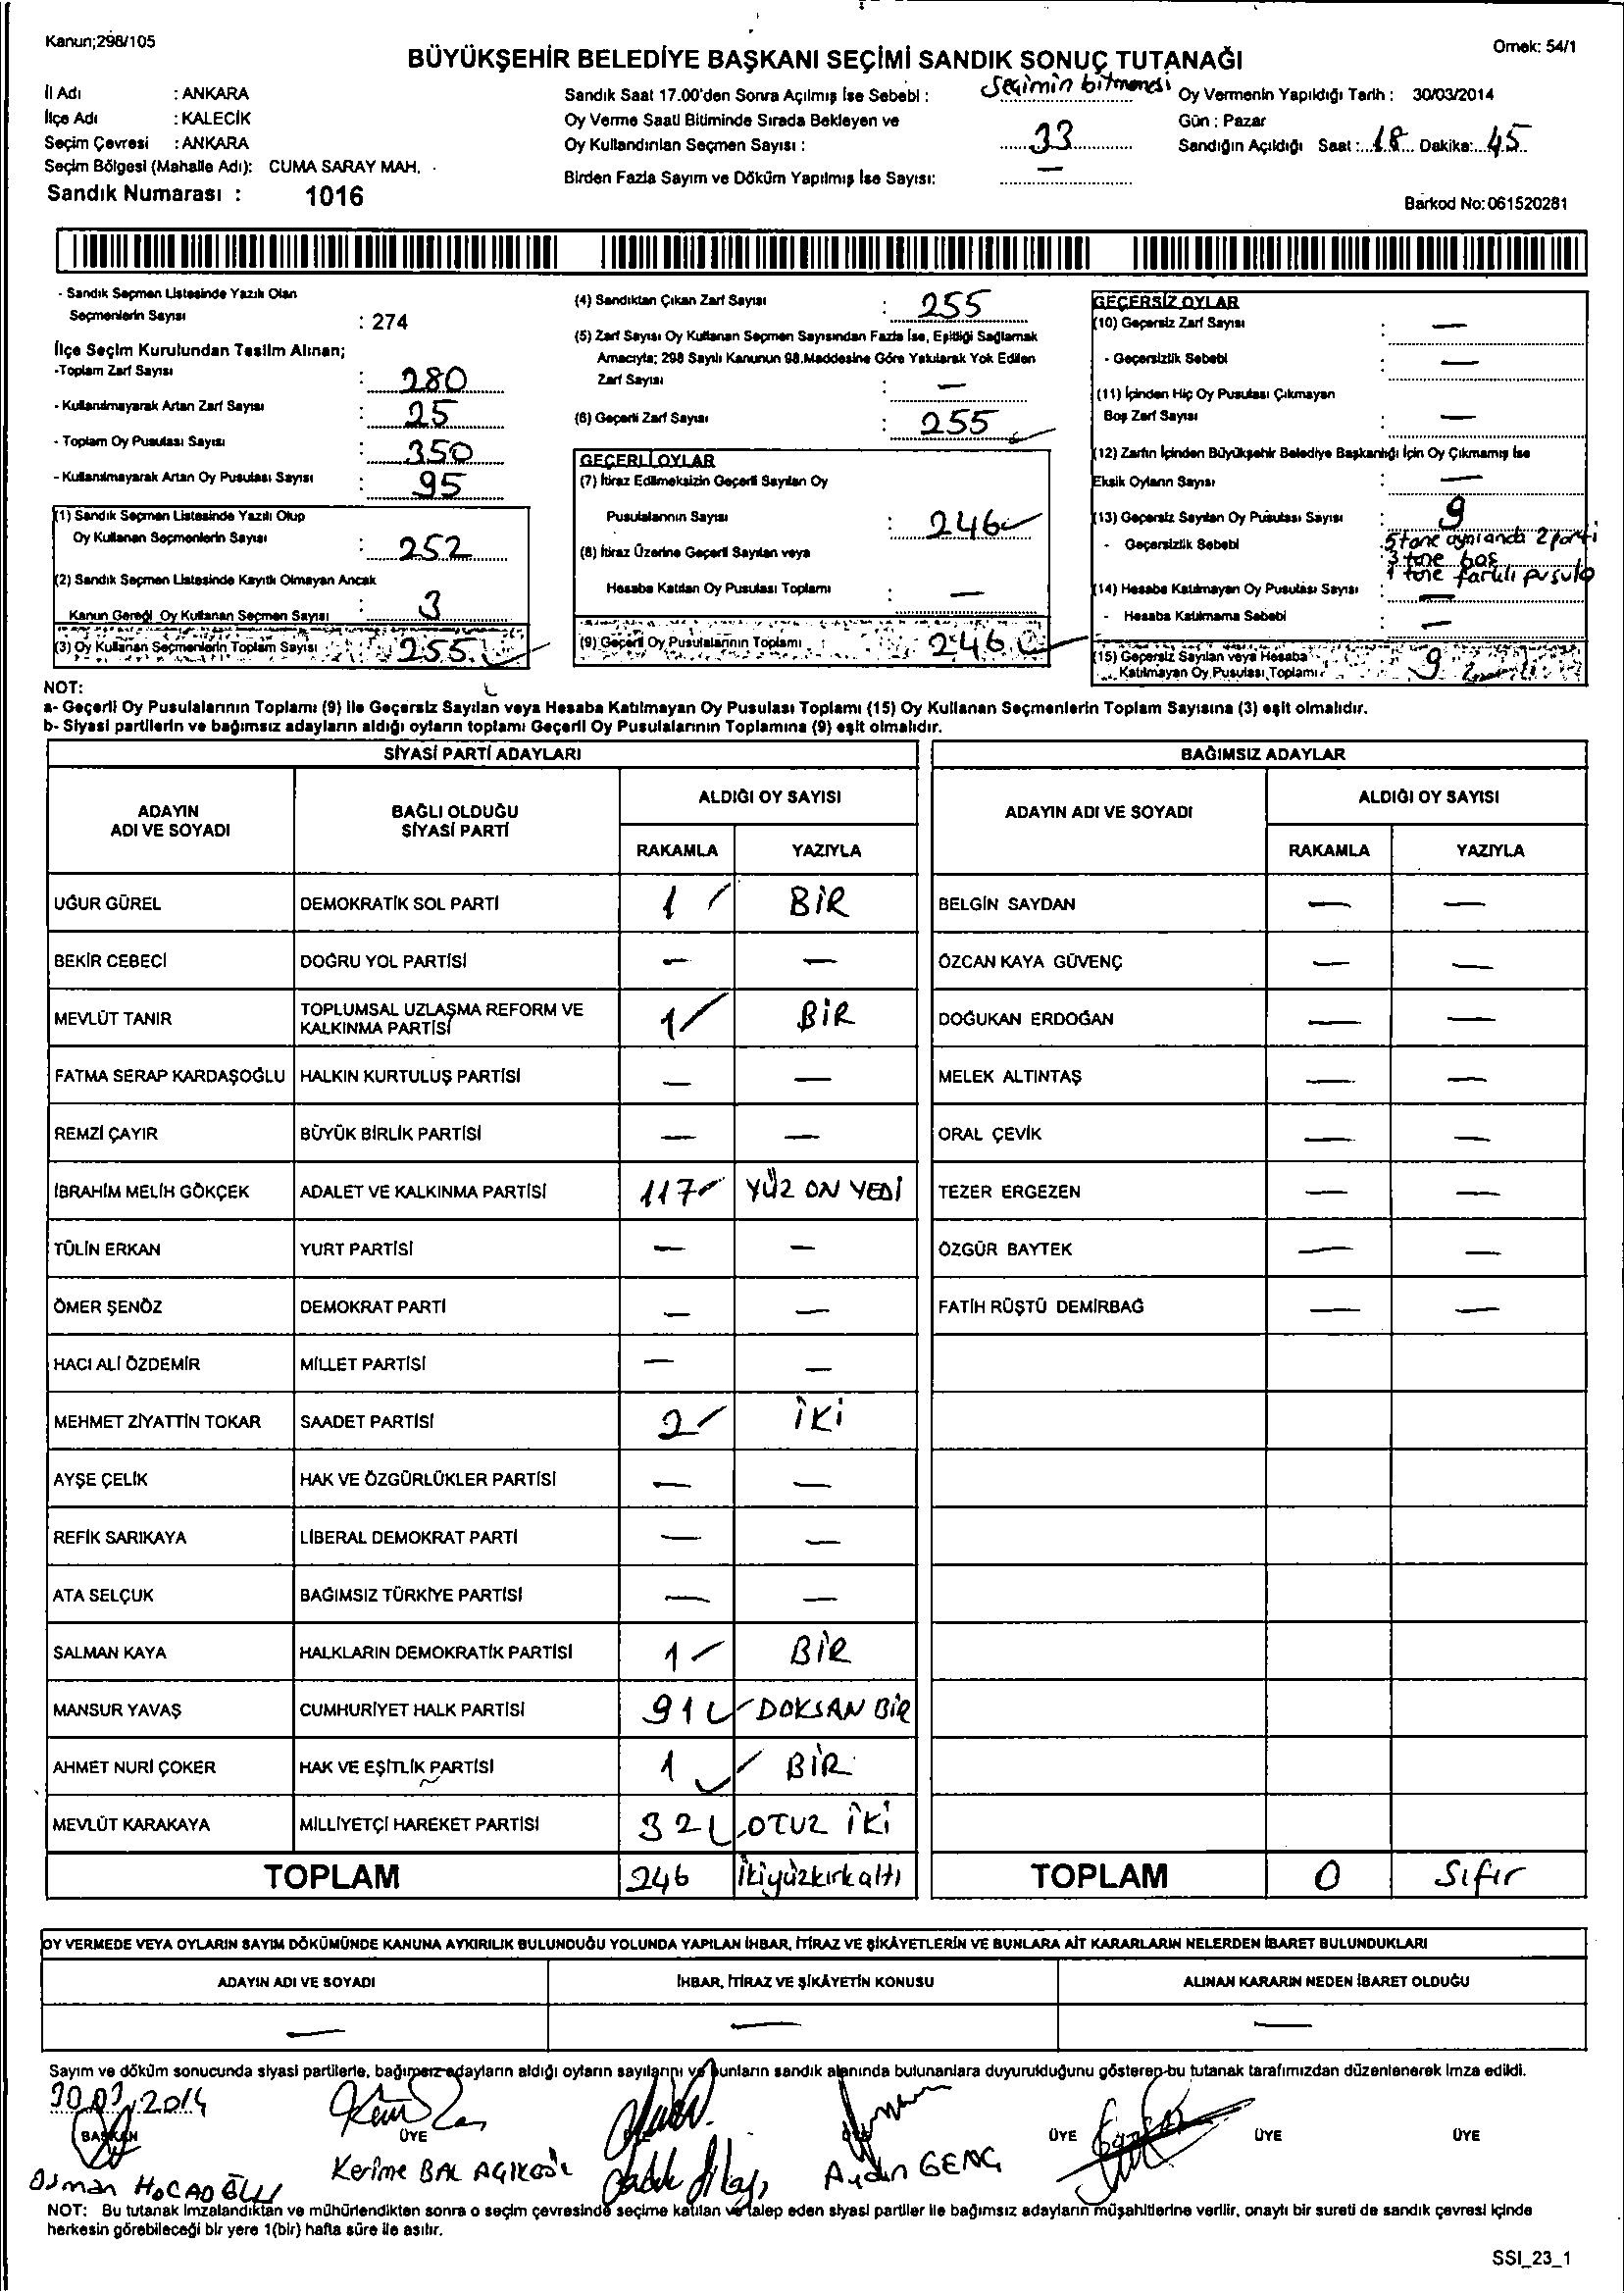 Kanun;298/105
Örnek: 54/1
BÜYÜKŞEHİR BELEDİYE BAŞKANI SEÇİMİ SANDIK SONUÇ TUTANAĞI
İl Adı : ANKARA
İlçe Adı : KALECİK
Seçim Çevresi : ANKARA
Seçim Bölgesi (Mahalle Adı): CUMA SARAY MAH.
Sandık Numarası : 1016
Sandık Saat 17.00'den Sonra Açılmış İse Sebebi : Seçimin bitmemesi
Oy Verme Saati Bitiminde Sırada Bekleyen ve
Oy Kullandırılan Seçmen Sayısı : 33
Birden Fazla Sayım ve Döküm Yapılmış İse Sayısı: —
Oy Vermenin Yapıldığı Tarih : 30/03/2014
Gün : Pazar
Sandığın Açıldığı Saat : 18 Dakika: 45
Barkod No: 061520281
- Sandık Seçmen Listesinde Yazılı Olan
Seçmenlerin Sayısı : 274
İlçe Seçim Kurulundan Teslim Alınan;
-Toplam Zarf Sayısı : 280
- Kullanılmayarak Artan Zarf Sayısı : 25
- Toplam Oy Pusulası Sayısı : 350
- Kullanılmayarak Artan Oy Pusulası Sayısı : 95
(1) Sandık Seçmen Listesinde Yazılı Olup
Oy Kullanan Seçmenlerin Sayısı : 252
(2) Sandık Seçmen Listesinde Kayıtlı Olmayan Ancak
Kanun Gereği Oy Kullanan Seçmen Sayısı : 3
(3) Oy Kullanan Seçmenlerin Toplam Sayısı : 255
(4) Sandıktan Çıkan Zarf Sayısı : 255
(5) Zarf Sayısı Oy Kullanan Seçmen Sayısından Fazla İse, Eşitliği Sağlamak
Amacıyla; 298 Sayılı Kanunun 98.Maddesine Göre Yakılarak Yok Edilen
Zarf Sayısı : —
(6) Geçerli Zarf Sayısı : 255
GEÇERLİ OYLAR
(7) İtiraz Edilmeksizin Geçerli Sayılan Oy
Pusulalarının Sayısı : 246
(8) İtiraz Üzerine Geçerli Sayılan veya
Hesaba Katılan Oy Pusulası Toplamı : —
(9) Geçerli Oy Pusulalarının Toplamı : 246
GEÇERSİZ OYLAR
(10) Geçersiz Zarf Sayısı : —
- Geçersizlik Sebebi : —
(11) İçinden Hiç Oy Pusulası Çıkmayan
Boş Zarf Sayısı : —
(12) Zarfın İçinden Büyükşehir Belediye Başkanlığı İçin Oy Çıkmamış İse
Eksik Oyların Sayısı : —
(13) Geçersiz Sayılan Oy Pusulası Sayısı : 9
- Geçersizlik Sebebi : 5 tane aynı anda 2 parti
3 tane boş
1 tane farklı pusula
(14) Hesaba Katılmayan Oy Pusulası Sayısı : —
- Hesaba Katılmama Sebebi : —
(15) Geçersiz Sayılan veya Hesaba
Katılmayan Oy Pusulası Toplamı : 9
NOT:
a- Geçerli Oy Pusulalarının Toplamı (9) ile Geçersiz Sayılan veya Hesaba Katılmayan Oy Pusulası Toplamı (15) Oy Kullanan Seçmenlerin Toplam Sayısına (3) eşit olmalıdır.
b- Siyasi partilerin ve bağımsız adayların aldığı oyların toplamı Geçerli Oy Pusulalarının Toplamına (9) eşit olmalıdır.
SİYASİ PARTİ ADAYLARI
ADAYIN ADI VE SOYADI BAĞLI OLDUĞU SİYASİ PARTİ ALDIĞI OY SAYISI
RAKAMLA YAZIYLA
UĞUR GÜREL DEMOKRATİK SOL PARTİ 1 BİR
BEKİR CEBECİ DOĞRU YOL PARTİSİ — —
MEVLÜT TANIR TOPLUMSAL UZLAŞMA REFORM VE KALKINMA PARTİSİ 1 BİR
FATMA SERAP KARDAŞOĞLU HALKIN KURTULUŞ PARTİSİ — —
REMZİ ÇAYIR BÜYÜK BİRLİK PARTİSİ — —
İBRAHİM MELİH GÖKÇEK ADALET VE KALKINMA PARTİSİ 117 YÜZ ON YEDİ
TÜLİN ERKAN YURT PARTİSİ — —
ÖMER ŞENÖZ DEMOKRAT PARTİ — —
HACI ALİ ÖZDEMİR MİLLET PARTİSİ — —
MEHMET ZİYATTİN TOKAR SAADET PARTİSİ 2 İKİ
AYŞE ÇELİK HAK VE ÖZGÜRLÜKLER PARTİSİ — —
REFİK SARIKAYA LİBERAL DEMOKRAT PARTİ — —
ATA SELÇUK BAĞIMSIZ TÜRKİYE PARTİSİ — —
SALMAN KAYA HALKLARIN DEMOKRATİK PARTİSİ 1 BİR
MANSUR YAVAŞ CUMHURİYET HALK PARTİSİ 91 DOKSAN BİR
AHMET NURİ ÇOKER HAK VE EŞİTLİK PARTİSİ 1 BİR
MEVLÜT KARAKAYA MİLLİYETÇİ HAREKET PARTİSİ 32 OTUZ İKİ
TOPLAM 246 İkiyüzkırkaltı
BAĞIMSIZ ADAYLAR
ADAYIN ADI VE SOYADI ALDIĞI OY SAYISI
RAKAMLA YAZIYLA
BELGİN SAYDAN — —
ÖZCAN KAYA GÜVENÇ — —
DOĞUKAN ERDOĞAN — —
MELEK ALTINTAŞ — —
ORAL ÇEVİK — —
TEZER ERGEZEN — —
ÖZGÜR BAYTEK — —
FATİH RÜŞTÜ DEMİRBAĞ — —
TOPLAM 0 Sıfır
OY VERMEDE VEYA OYLARIN SAYIM DÖKÜMÜNDE KANUNA AYKIRILIK BULUNDUĞU YOLUNDA YAPILAN İHBAR, İTİRAZ VE ŞİKÂYETLERİN VE BUNLARA AİT KARARLARIN NELERDEN İBARET BULUNDUKLARI
ADAYIN ADI VE SOYADI İHBAR, İTİRAZ VE ŞİKÂYETİN KONUSU ALINAN KARARIN NEDEN İBARET OLDUĞU
— — —
Sayım ve döküm sonucunda siyasi partilerle, bağımsız adayların aldığı oyların sayılarını ve bunların sandık alanında bulunanlara duyurulduğunu gösteren bu tutanak tarafımızdan düzenlenerek imza edildi.
30.03.2014
BAŞKAN ÜYE ÜYE ÜYE ÜYE ÜYE
Osman HOCAOĞLU Kerime BAL AÇIKGÖZ Aydın GENÇ
NOT: Bu tutanak imzalandıktan ve mühürlendikten sonra o seçim çevresinde seçime katılan ve talep eden siyasi partiler ile bağımsız adayların müşahitlerine verilir, onaylı bir sureti de sandık çevresi içinde
herkesin görebileceği bir yere 1(bir) hafta süre ile asılır.
SSI_23_1